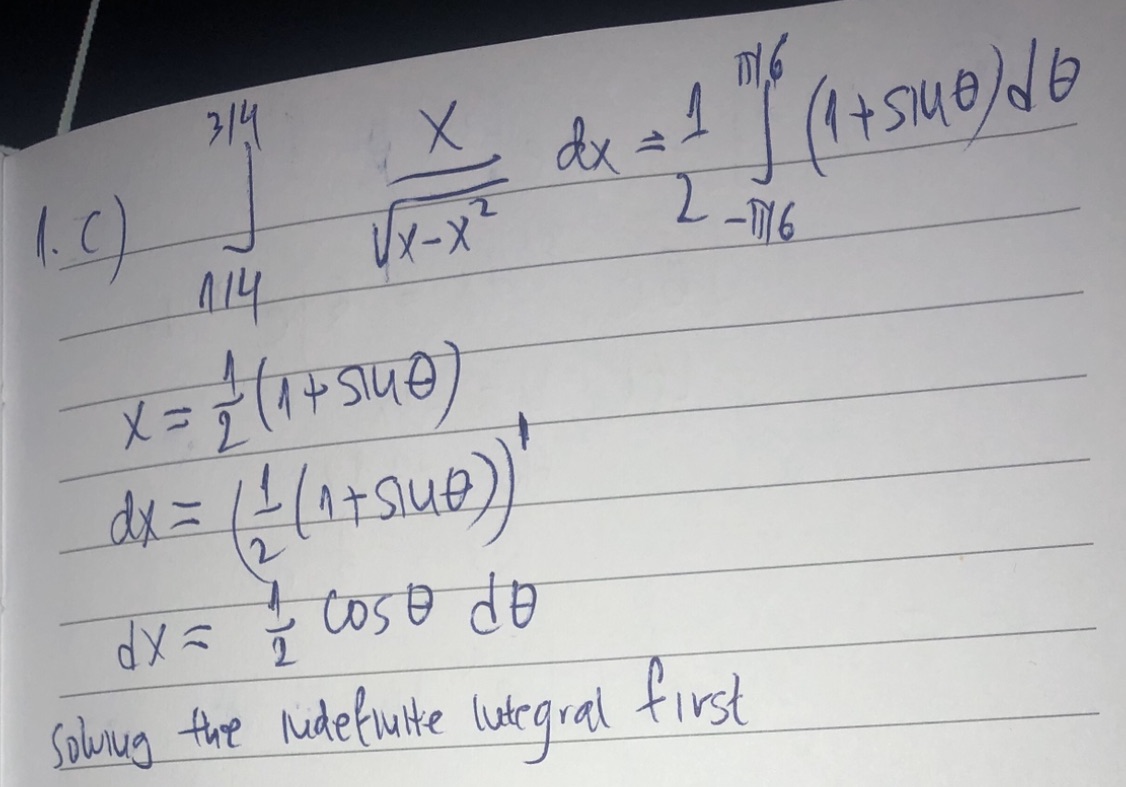 1. c) ∫_{1/4}^{3/4} x/√(x-x²) dx = 1/2 ∫_{-π/6}^{π/6} (1+sinθ)dθ
x = 1/2 (1+sinθ)
dx = (1/2 (1+sinθ))'
dx = 1/2 cosθ dθ
solving the indefinite integral first